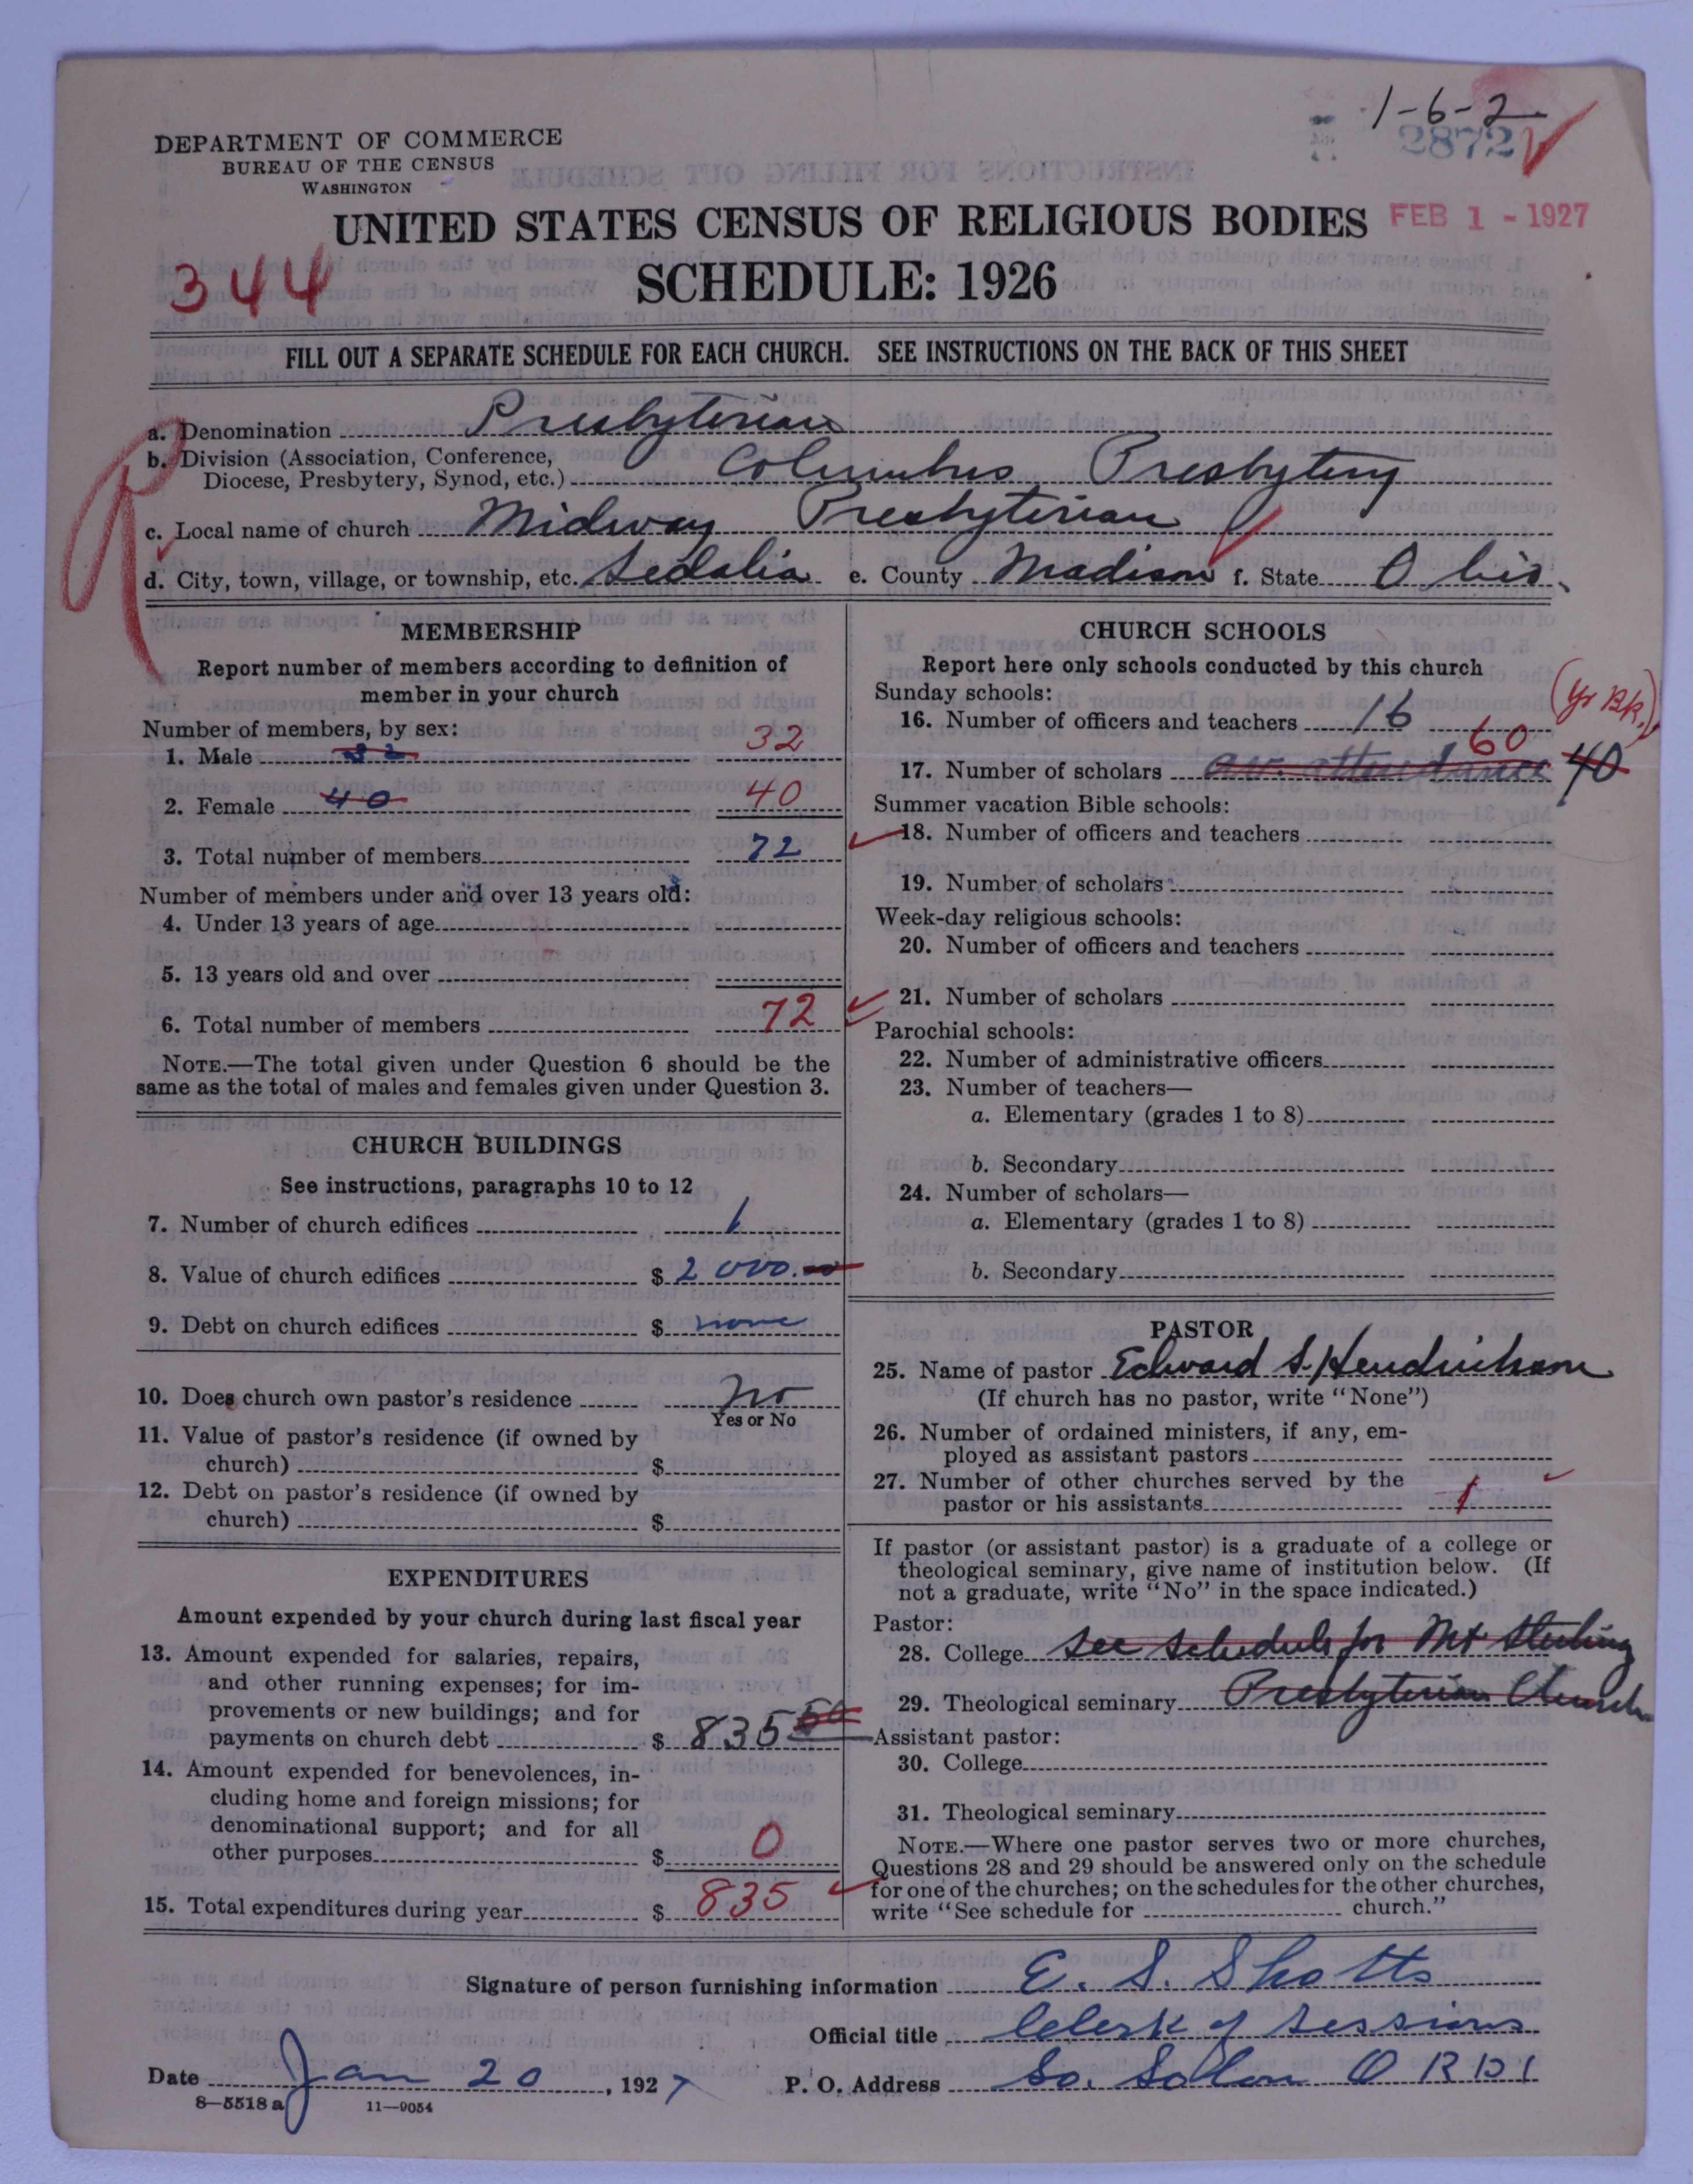 1-6-2
2872
DEPARTMENT OF COMMERCE
BUREAU OF THE CENSUS
WASHINGTON
UNITED STATES CENSUS OF RELIGIOUS BODIES
FEB 1 - 1927
344
SCHEDULE: 1926
FILL OUT A SEPARATE SCHEDULE FOR EACH CHURCH. SEE INSTRUCTIONS ON THE BACK OF THIS SHEET
a. Denomination Presbyterian
b. Division (Association, Conference,
Diocese, Presbytery, Synod, etc.) Columbus Presbytery
c. Local name of church Midway Presbyterian
d. City, town, village, or township, etc. Sedalia e. County Madison f. State Ohio.
MEMBERSHIP
Report number of members according to definition of
member in your church
Number of members, by sex:
1. Male 32 32
2. Female 40 40
3. Total number of members 72
Number of members under and over 13 years old:
4. Under 13 years of age
5. 13 years old and over
6. Total number of members 72
NOTE.—The total given under Question 6 should be the
same as the total of males and females given under Question 3.
CHURCH BUILDINGS
See instructions, paragraphs 10 to 12
7. Number of church edifices 1
8. Value of church edifices $ 2000.00
9. Debt on church edifices $ none
10. Does church own pastor's residence No
Yes or No
11. Value of pastor's residence (if owned by
church) $
12. Debt on pastor's residence (if owned by
church) $
EXPENDITURES
Amount expended by your church during last fiscal year
13. Amount expended for salaries, repairs,
and other running expenses; for im-
provements or new buildings; and for
payments on church debt $ 835
14. Amount expended for benevolences, in-
cluding home and foreign missions; for
denominational support; and for all
other purposes $ 0
15. Total expenditures during year $ 835
CHURCH SCHOOLS
Report here only schools conducted by this church
Sunday schools:
16. Number of officers and teachers 16
(Yr Bk.)
60
17. Number of scholars av. attendance 40
Summer vacation Bible schools:
18. Number of officers and teachers
19. Number of scholars
Week-day religious schools:
20. Number of officers and teachers
21. Number of scholars
Parochial schools:
22. Number of administrative officers
23. Number of teachers—
a. Elementary (grades 1 to 8)
b. Secondary
24. Number of scholars—
a. Elementary (grades 1 to 8)
b. Secondary
PASTOR
25. Name of pastor Edward S. Hendrickson
(If church has no pastor, write "None")
26. Number of ordained ministers, if any, em-
ployed as assistant pastors
27. Number of other churches served by the
pastor or his assistants 1
If pastor (or assistant pastor) is a graduate of a college or
theological seminary, give name of institution below. (If
not a graduate, write "No" in the space indicated.)
Pastor:
28. College see schedule for Mt Sterling
29. Theological seminary Presbyterian Church
Assistant pastor:
30. College
31. Theological seminary
NOTE.—Where one pastor serves two or more churches,
Questions 28 and 29 should be answered only on the schedule
for one of the churches; on the schedules for the other churches,
write "See schedule for church."
Signature of person furnishing information E. S. Shotts
Official title Clerk of Sessions
Date Jan 20, 1927 P. O. Address So. Solon O R D 1
8—5518 a 11—9054